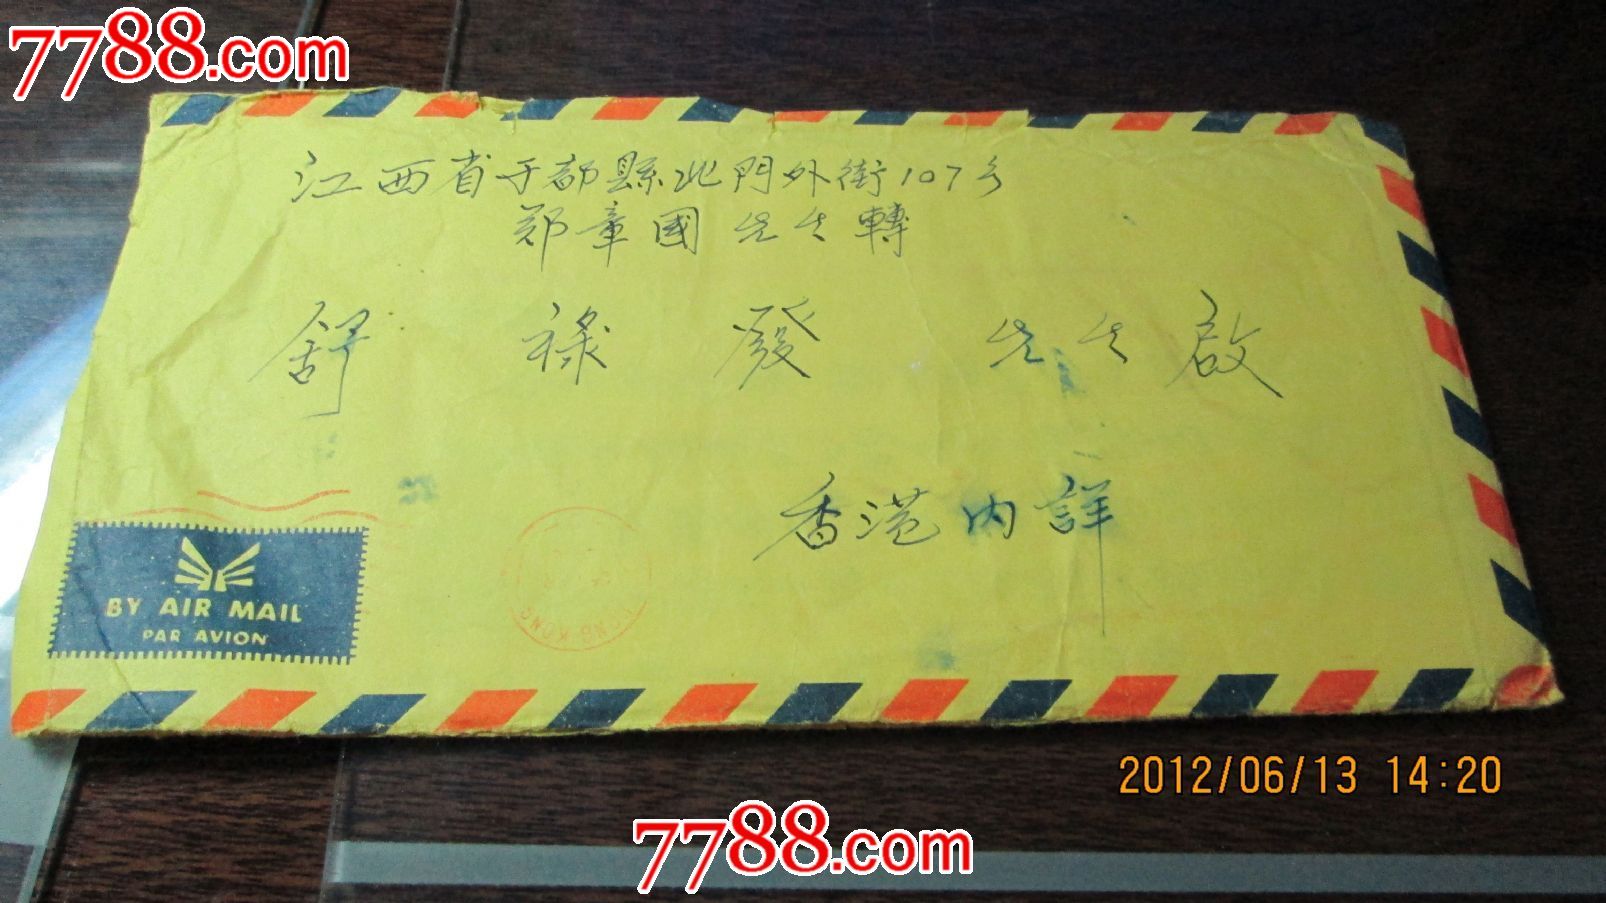 7788.com
江西省于都縣北門外街107号
郑章國先生轉
舒禄發先生啟
香港内詳
BY AIR MAIL
PAR AVION
HONG KONG
2012/06/13 14:20
7788.com